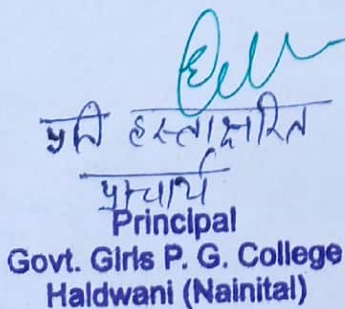 प्रति हस्ताक्षरित
प्राचार्य
Principal
Govt. Girls P. G. College
Haldwani (Nainital)